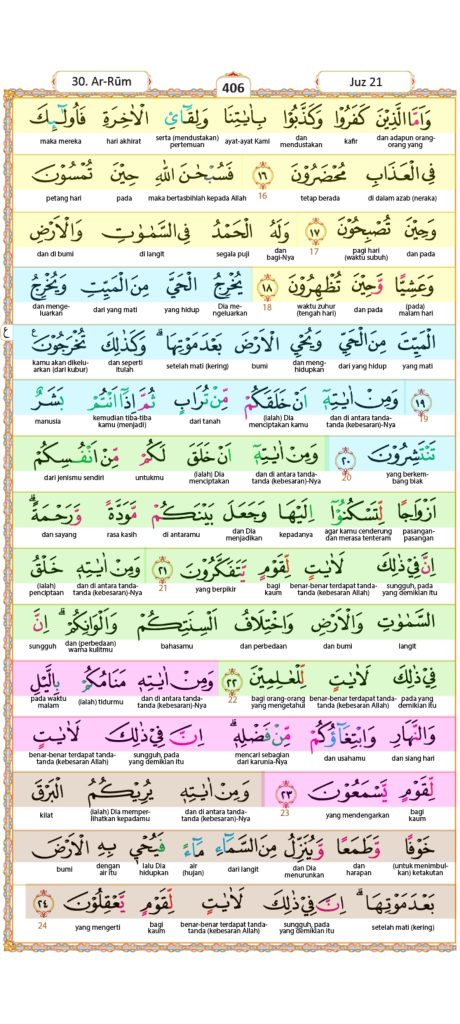 30. Ar-Rūm
406
Juz 21
وَاَمَّا الَّذِيْنَ كَفَرُوْا وَكَذَّبُوْا بِاٰيٰتِنَا وَلِقَاۤئِ الْاٰخِرَةِ فَاُولٰۤىِٕكَ
dan adapun orang-orang yang kafir dan mendustakan ayat-ayat Kami serta (mendustakan) pertemuan hari akhirat maka mereka
فِى الْعَذَابِ مُحْضَرُوْنَ ١٦ فَسُبْحٰنَ اللّٰهِ حِيْنَ تُمْسُوْنَ
di dalam azab (neraka) tetap berada 16 maka bertasbihlah kepada Allah pada petang hari
وَحِيْنَ تُصْبِحُوْنَ ١٧ وَلَهُ الْحَمْدُ فِى السَّمٰوٰتِ وَالْاَرْضِ
dan pada pagi hari (waktu subuh) 17 dan bagi-Nya segala puji di langit dan di bumi
وَعَشِيًّا وَّحِيْنَ تُظْهِرُوْنَ ١٨ يُخْرِجُ الْحَيَّ مِنَ الْمَيِّتِ وَيُخْرِجُ
(pada) malam hari dan pada waktu zuhur (tengah hari) 18 Dia me-ngeluarkan yang hidup dari yang mati dan menge-luarkan
ع
الْمَيِّتَ مِنَ الْحَيِّ وَيُحْيِ الْاَرْضَ بَعْدَ مَوْتِهَاۗ وَكَذٰلِكَ تُخْرَجُوْنَ ࣖ
yang mati dari yang hidup dan meng-hidupkan bumi setelah mati (kering) dan seperti itulah kamu akan dikelu-arkan (dari kubur)
١٩ وَمِنْ اٰيٰتِهٖٓ اَنْ خَلَقَكُمْ مِّنْ تُرَابٍ ثُمَّ اِذَآ اَنْتُمْ بَشَرٌ
19 dan di antara tanda-tanda (kebesaran)-Nya (ialah) Dia menciptakan kamu dari tanah kemudian tiba-tiba kamu (menjadi) manusia
تَنْتَشِرُوْنَ ٢٠ وَمِنْ اٰيٰتِهٖٓ اَنْ خَلَقَ لَكُمْ مِّنْ اَنْفُسِكُمْ
yang berkem-bang biak 20 dan di antara tanda-tanda (kebesaran)-Nya (ialah) Dia menciptakan untukmu dari jenismu sendiri
اَزْوَاجًا لِّتَسْكُنُوْٓا اِلَيْهَا وَجَعَلَ بَيْنَكُمْ مَّوَدَّةً وَّرَحْمَةًۗ
pasangan-pasangan agar kamu cenderung dan merasa tenteram kepadanya dan Dia menjadikan di antaramu rasa kasih dan sayang
اِنَّ فِيْ ذٰلِكَ لَاٰيٰتٍ لِّقَوْمٍ يَّتَفَكَّرُوْنَ ٢١ وَمِنْ اٰيٰتِهٖ خَلْقُ
sungguh, pada yang demikian itu benar-benar terdapat tanda-tanda (kebesaran Allah) bagi kaum yang berpikir 21 dan di antara tanda-tanda (kebesaran)-Nya (ialah) penciptaan
السَّمٰوٰتِ وَالْاَرْضِ وَاخْتِلَافُ اَلْسِنَتِكُمْ وَاَلْوَانِكُمْۗ اِنَّ
langit dan bumi dan perbedaan bahasamu dan (perbedaan) warna kulitmu sungguh
فِيْ ذٰلِكَ لَاٰيٰتٍ لِّلْعٰلِمِيْنَ ٢٢ وَمِنْ اٰيٰتِهٖ مَنَامُكُمْ بِالَّيْلِ
pada yang demikian itu benar-benar terdapat tanda-tanda (kebesaran Allah) bagi orang-orang yang mengetahui 22 dan di antara tanda-tanda (kebesaran)-Nya (ialah) tidurmu pada waktu malam
وَالنَّهَارِ وَابْتِغَاۤؤُكُمْ مِّنْ فَضْلِهٖۗ اِنَّ فِيْ ذٰلِكَ لَاٰيٰتٍ
dan siang hari dan usahamu mencari sebagian dari karunia-Nya sungguh, pada yang demikian itu benar-benar terdapat tanda-tanda (kebesaran Allah)
لِّقَوْمٍ يَّسْمَعُوْنَ ٢٣ وَمِنْ اٰيٰتِهٖ يُرِيْكُمُ الْبَرْقَ
bagi kaum yang mendengarkan 23 dan di antara tanda-tanda (kebesaran)-Nya (ialah) Dia memper-lihatkan kepadamu kilat
خَوْفًا وَّطَمَعًا وَّيُنَزِّلُ مِنَ السَّمَاۤءِ مَاۤءً فَيُحْيٖ بِهِ الْاَرْضَ
(untuk menimbul-kan) ketakutan dan harapan dan Dia menurunkan dari langit air (hujan) lalu Dia hidupkan dengan air itu bumi
بَعْدَ مَوْتِهَاۗ اِنَّ فِيْ ذٰلِكَ لَاٰيٰتٍ لِّقَوْمٍ يَّعْقِلُوْنَ ٢٤
setelah mati (kering) sungguh, pada yang demikian itu benar-benar terdapat tanda-tanda (kebesaran Allah) bagi kaum yang mengerti 24